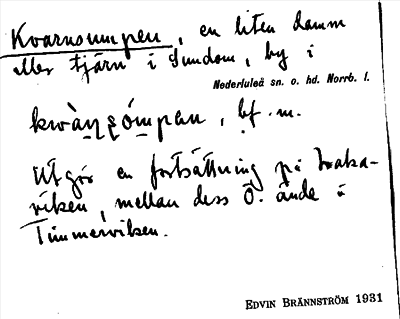 Kvarnsumpen, en liten damm
eller tjärn i Sundom, by i
Nederluleå sn. o. hd. Norrb. l.
bf. m.
Utgör en fortsättning på
viken, mellan dess Ö. ände &
Timmerviken.
EDVIN BRÄNNSTRÖM 1931